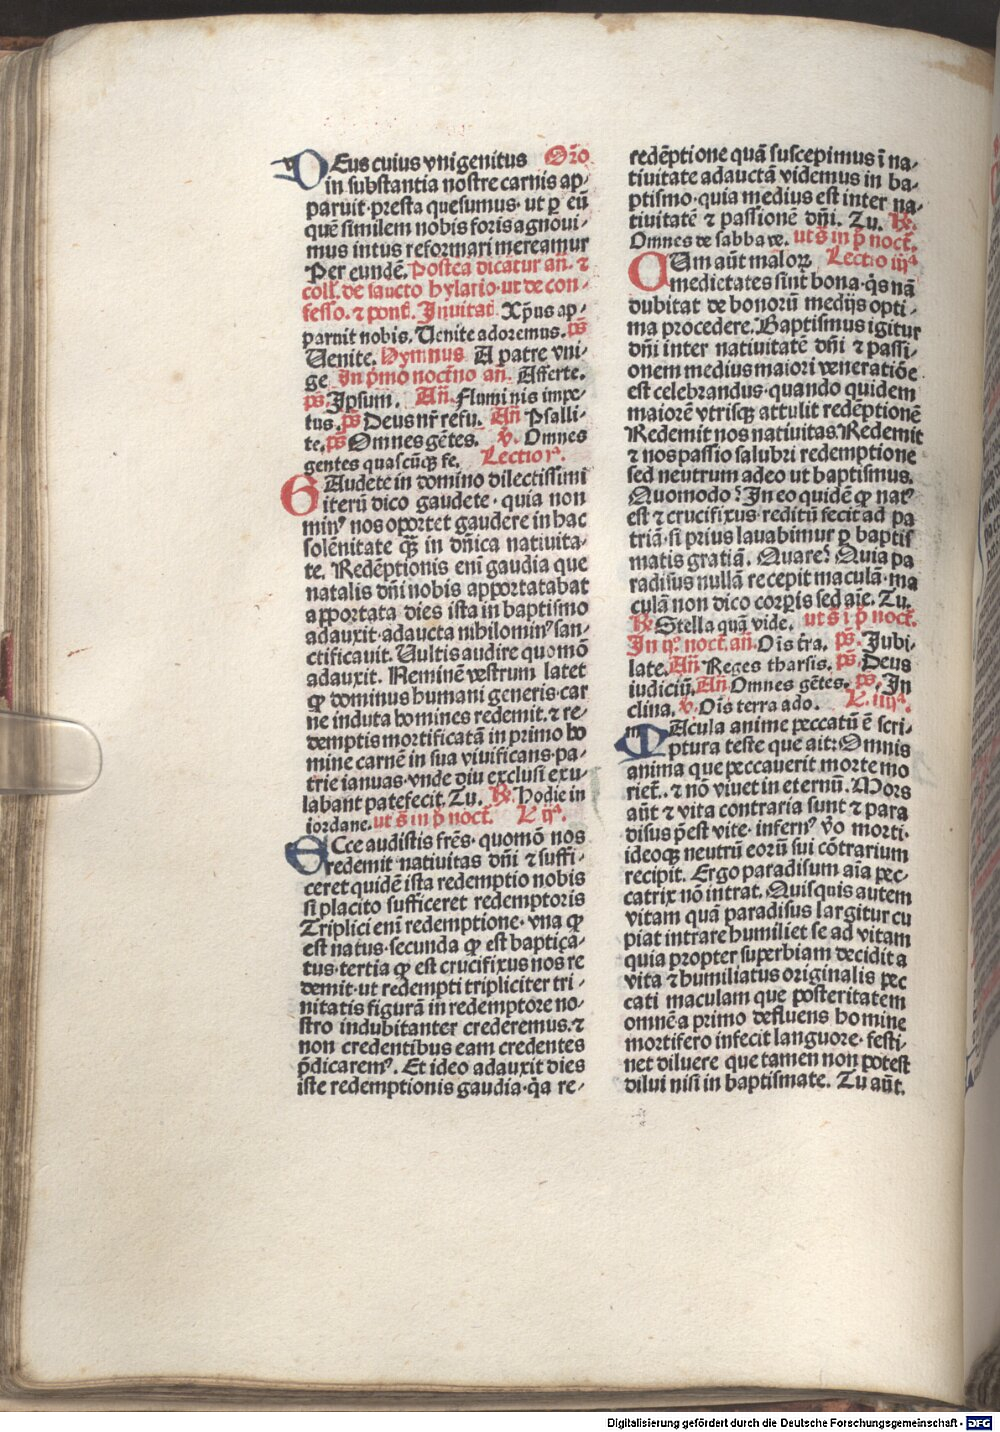 DEus cuius vnigenitus Orõ
in substantia nostre carnis ap⸗
paruit·presta quesumus·ut ꝑ eũ
quẽ similem nobis foris agnoui⸗
mus intus reformari mereamur
Per eundẽ. Postea dicãtur añ. ⁊
coll. de sancto hylario·ut de con⸗
fesso. ⁊ pont̃. Inuitat̃ Xp̃us ap⸗
paruit nobis. Uenite adoremus. ps̃
Uenite. Hymnus A patre vni⸗
ge In p̃mo noct̃no añ. Afferte.
ps̃ Ipsum. Añ. Fluminis impe⸗
tus. ps̃ Deus nr̃ refu. Añ Psalli⸗
te. ps̃ Omnes gẽtes. v̾. Omnes
gentes quascũqꝫ fe. Lectio pª.
GAudete in domino dilectissimi
iterũ dico gaudete· quia non
minꝰ nos oportet gaudere in hac
solẽnitate qꝫ̃ in dñica natiuita⸗
te. Redẽptionis eni᷑ gaudia que
natalis dñi nobis apportatabat
apportata dies ista in baptismo
adauxit·adaucta nihilominꝰ san⸗
ctificauit. Uultis audire quomõ
adauxit. Neminẽ vestrum latet
ꝙ dominus humani generis car
ne induta homines redemit. ⁊ re⸗
demptis mortificatã in primo ho
mine carnẽ in sua viuificans·pa⸗
trie ianuas·vnde diu exclusi exu⸗
labant patefecit. Tu. ℟. Hodie in
iordane. ut s̃ in p̃ noct̃. L. ijª.
ECce audistis fr̃es· quomõ nos
redemit natiuitas dñi ⁊ suffi⸗
ceret quidẽ ista redemptio nobis
si placito sufficeret redemptoris
Triplici eni᷑ redemptione· vna ꝙ
est natus·secunda ꝙ est baptiça⸗
tus·tertia ꝙ est crucifixus nos re
demit·ut redempti tripliciter tri⸗
nitatis figurã in redemptore no⸗
stro indubitanter crederemus. ⁊
non credentibus eam credentes
p̃dicaremꝰ. Et ideo adauxit dies
iste redemptionis gaudia·q̃a re⸗
redẽptione quã suscepimus ĩ na⸗
tiuitate adauctã videmus in ba⸗
ptismo·quia medius est inter na⸗
tiuitatẽ ⁊ passionẽ dñi. Tu. ℟.
Omnes de sabba ve. ut s̃ in p̃ noct̃.
CUm aũt maloꝝ Lectio iijª
medietates sint bona·q̃s nã
dubitat de bonorũ medijs opti⸗
ma procedere. Baptismus igitur
dñi inter natiuitatẽ dñi ⁊ passi⸗
onem medius maiori veneratiõe
est celebrandus·quando quidem
maiorẽ vtrisqꝫ attulit redẽptionẽ
Redemit nos natiuitas. Redemit
⁊ nos passio salubri redemptione
sed neutrum adeo ut baptismus.
Quomodo? In eo quidẽ ꝙ natꝰ
est ⁊ crucifixus·reditũ fecit ad pa
triã·si prius lauabimur ꝑ baptis
matis gratiã. Quare? Quia pa
radisus nullã recepit maculã·ma
culã non dico corꝑis sed aĩe. Tu.
℟. Stella quã vide. ut s̃ ĩ p̃ noct̃.
In ijº. noct̃. añ. Oĩs t̃ra. ps̃. Iubi⸗
late. Añ. Reges tharsis. ps̃. Deus
iudiciũ. Añ Omnes gẽtes. ps̃. In
clina. v̾. Oĩs terra ado. L. iiijª.
MAcula anime peccatũ ẽ scri⸗
ptura teste que ait: Omnis
anima que peccauerit morte mo
riet̃. ⁊ nõ viuet in eternũ. Mors
aũt ⁊ vita contraria sunt ⁊ para
disus p̃est vite· infernꝰ v̾o morti·
ideoqꝫ neutrũ eorũ sui cõtrarium
recipit. Ergo paradisum aĩa pec⸗
catrix nõ intrat. Quisquis autem
vitam quã paradisus largitur cu
piat intrare humiliet se ad vitam
quia propter superbiam decidit a
vita ⁊ humiliatus originalis pec
cati maculam que posteritatem
omnẽ a primo defluens homine
mortifero infecit languore· festi⸗
net diluere que tamen non potest
dilui nisi in baptismate. Tu aũt.
Digitalisierung gefördert durch die Deutsche Forschungsgemeinschaft - DFG